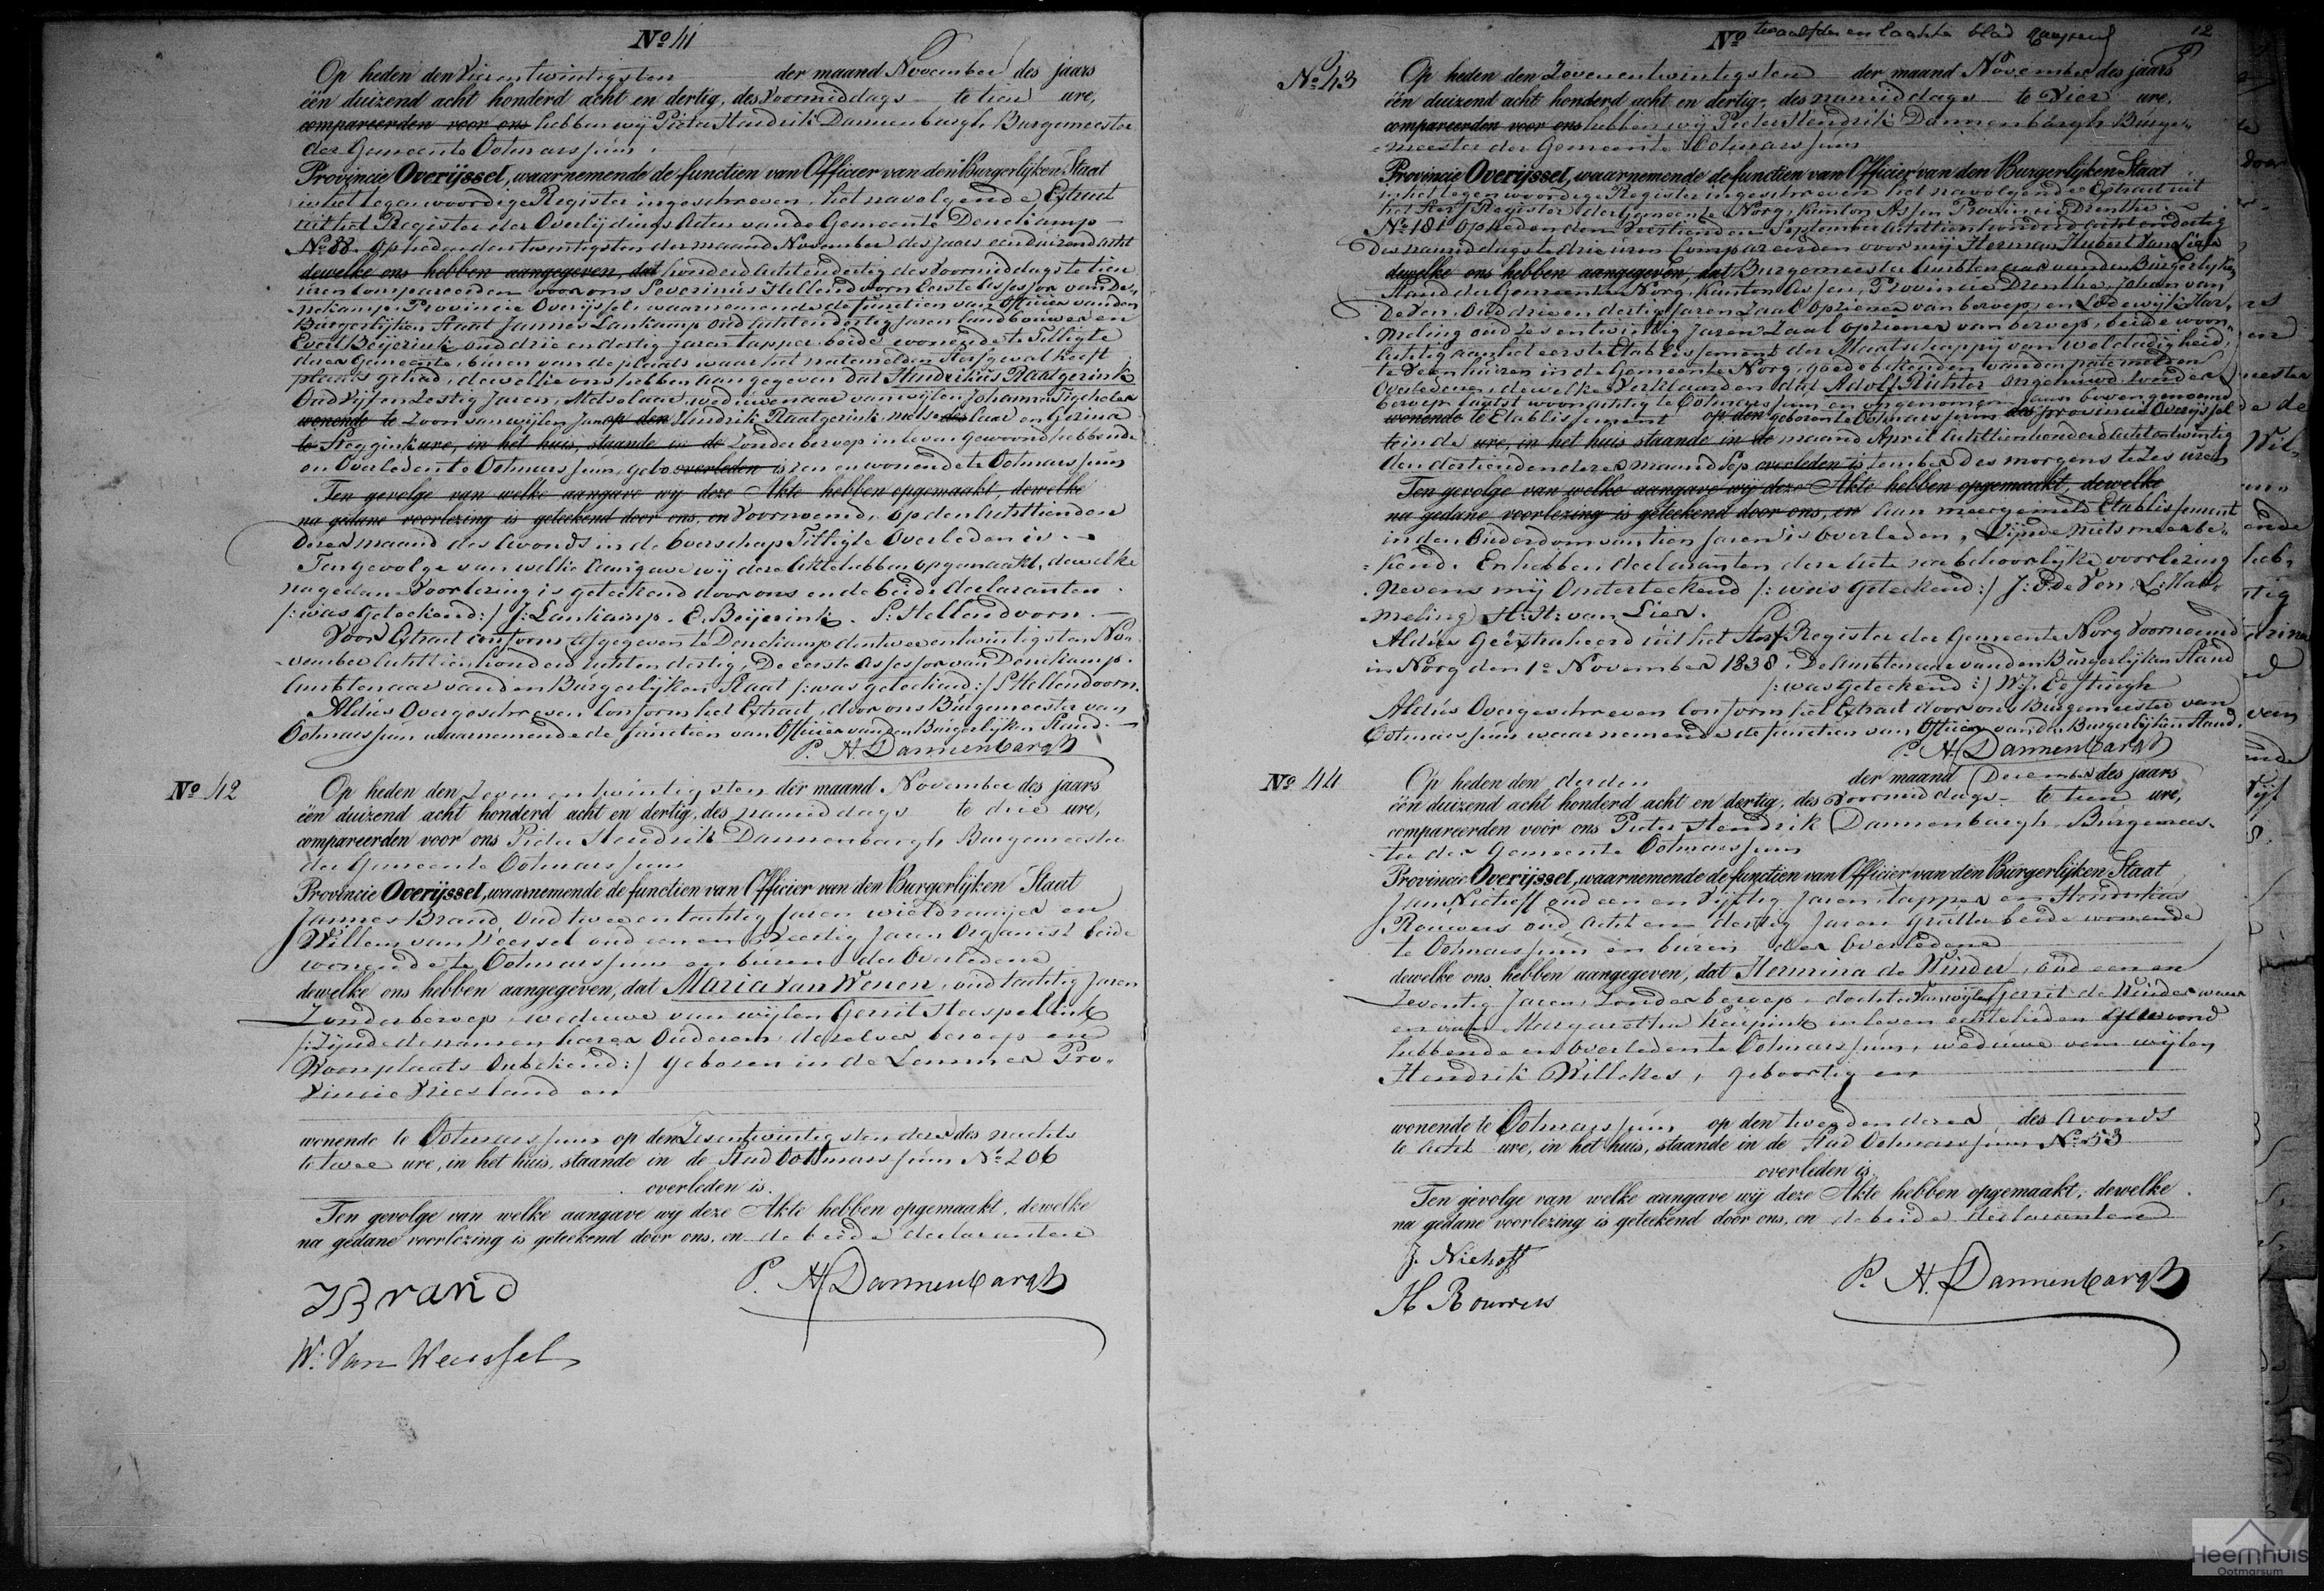 No 41
Op heden den Vierentwintigsten der maand November des jaars
één duizend acht honderd acht en dertig, des Voormiddags te tien ure,
compareerden voor ons hebben wij Pieter Hendrik Dannenbargh Burgemeester
der Gemeente Ootmarssum
Provincie Overijssel, waarnemende de functien van Officier van den Burgerlijken Staat
in het tegenwoordige Register ingeschreven het navolgende Extract
uit het Register der Overlijdings Acten van de Gemeente Denekamp
No 88. Op heden den twintigsten der maand November des Jaars een duizend acht
dewelke ons hebben aangegeven, dat honderd acht en dertig des Voormiddags te tien
uren compareerden voor ons Severinus Hellendoorn Eerste Assessor van De-
nekamp Provincie Overijssel waarnemende de functien van Officier van den
Burgerlijken Staat Jannes Lankamp oud acht en dertig Jaren landbouwer en
Evert Beijerink oud drie en dertig Jaren tapper beide wonende te Tilligte
dezer Gemeente, buren van de plaats waar het natemelden Sterfgeval heeft
plaats gehad, dewelke ons hebben aangegeven dat Hendrikus Raatgerink
Oud Vijf en Zestig Jaren, Metselaar, weduwenaar van wijlen Johanna Tijscholer
wonende te Zoon van wijlen Jan op den Hendrik Raatgerink metse des laar en Gezina
te Reggink ure, in het huis, staande in de Zonder beroep in leven gewoond hebbende
en Overleden te Ootmarssum, gebo overleden is ren en wonende te Ootmarssum
Ten gevolge van welke aangave wij deze Akte hebben opgemaakt, dewelke
na gedane voorlezing is geteekend door ons, en Voornoemd, op den Achttienden
dezer maand des Avonds in de boerschap Tilligte Overleden is.
Ten gevolge van welke Aangave wij deze Akte hebben opgemaakt, dewelke
na gedane Voorlezing is geteekend door ons en de beide declaranten
/:was geteekend:/ J: Lankamp. E. Beijerink. S: Hellendoorn.
Voor Extract conform afgegeven te Denekamp den tweeentwintigsten No-
vember Achttien honderd acht en dertig, De eerste Assessor van Denekamp.
Ambtenaar van den Burgerlijken Staat /:was geteekend:/ S Hellendoorn.
Aldus Overgeschreven Conform het Extract, door ons Burgemeester van
Ootmarssum waarnemende de functien van Officier van den Burgerlijken Stand.
P. H. Dannenbargh
No 42
Op heden den Zeven en twintigsten der maand November des jaars
één duizend acht honderd acht en dertig, des namiddags te drie ure,
compareerden voor ons Pieter Hendrik Dannenbargh Burgemeester
der Gemeente Ootmarssum
Provincie Overijssel, waarnemende de functien van Officier van den Burgerlijken Staat
Jannes Brand Oud twee en tachtig Jaren wieldraaijer en
Willem van Weersel oud een en Veertig Jaren Organist beide
wonende te Ootmarssum en buren der Overledene
dewelke ons hebben aangegeven, dat Maria van Wenen, oud tachtig Jaren
Zonder beroep, weduwe van wijlen Gerrit Haspellink
/:Zijnde de namen harer Ouderen derzelver beroep en
Woonplaats Onbekend:/ geboren in de Lemmer Pro-
vincie Vriesland en
wonende te Ootmarssum op den Zesentwintigsten dezer des nachts
te twee ure, in het huis, staande in de Stad Ootmarssum No 206
overleden is.
Ten gevolge van welke aangave wij deze Akte hebben opgemaakt, dewelke
na gedane voorlezing is geteekend door ons, en de beide declaranten
J Brand
P. H. Dannenbargh
W: Van Weersel
No twaalfde en laatste blad
12
No 43
Op heden den Zevenentwintigsten der maand November des jaars
één duizend acht honderd acht en dertig, des namiddags te Vier ure,
compareerden voor ons hebben wij Pieter Hendrik Dannenbargh Burge-
meester der Gemeente Ootmarssum
Provincie Overijssel, waarnemende de functien van Officier van den Burgerlijken Staat
in het tegenwoordige Register ingeschreven het navolgende Extract uit
het Sterf Register der Gemeente Norg, Kanton Assen Provincie Drenthe.
No 181 Op heden den Veertienden September Achttienhonderd acht en dertig
des namiddags te drie uren Compareerden voor mij Herman Hubert Van Lier
dewelke ons hebben aangegeven, dat Burgemeester Ambtenaar van den Burgerlijken
Stand der Gemeente Norg, Kanton Assen, Provincie Drenthe, Johan van
De Ven, Oud drie en dertig Jaren Zaal Opziener van beroep, en Lodewijk Har-
meling oud Zes en twintig Jaren Zaal opziener van beroep, beide woon-
achtig aan het eerste Etablissement der Maatschappij van Weldadigheid
te Veenhuizen in de Gemeente Norg, goede bekenden van den natemelden
Overledene, dewelke Verklaarden dat Adolf Richter ongehuwd zonder
beroep laatst woonachtig te Ootmarssum en opgenomen aan bovengenoemd
wonende te Etablissement op den geboren te Ootmarssum des provincie Overijssel
te in de ure, in het huis staande in de maand April Achttienhonderd achtentwintig
den dertienden dezer maand Sep overleden is tember des morgens te Zes uren
Ten gevolge van welke aangave wij deze Akte hebben opgemaakt, dewelke
na gedane voorlezing is geteekend door ons, en aan meergemeld Etablissement
in den Ouderdom van tien Jaren is Overleden, Zijnde niets meer be-
kend. En hebben declaranten deze Acte na behoorlijke voorlezing
nevens mij Onderteekend /:was geteekend:/ J: v: de Ven, L: Har-
meling H: H: van Lier.
Aldus Geëxtraheerd uit het Sterf Register der Gemeente Norg Voornoemd
in Norg den 1e November 1838. De Ambtenaar van den Burgerlijken Stand
/:was geteekend:/ W: J. Oostingh
Aldus Overgeschreven Conform het Extract door ons Burgemeester van
Ootmarssum waarnemende de functien van Officier van den Burgerlijken Stand.
P. H. Dannenbargh
No 44
Op heden den derden der maand December des jaars
één duizend acht honderd acht en dertig, des Voormiddags te tien ure,
compareerden voor ons Pieter Hendrik Dannenbargh Burgemees-
ter der Gemeente Ootmarssum
Provincie Overijssel, waarnemende de functien van Officier van den Burgerlijken Staat
Jan Niehoff oud een en Vijftig Jaren tapper en Hendrikus
Rouwers oud acht en dertig Jaren grutter beide wonende
te Ootmarssum en buren der Overledene
dewelke ons hebben aangegeven, dat Hermina de Winder, oud een en
Zeventig Jaren, Zonder beroep, dochter van wijlen Gerrit de Winder wever
en van Margaretha Kuipink in leven echtelieden gewoond
hebbende en Overleden te Ootmarssum, weduwe van wijlen
Hendrik Willekes, geboortig en
wonende te Ootmarssum op den tweeden dezer des avonds
te acht ure, in het huis, staande in de Stad Ootmarssum No 53
overleden is.
Ten gevolge van welke aangave wij deze Akte hebben opgemaakt, dewelke
na gedane voorlezing is geteekend door ons, en de beide declaranten
J. Niehoff
H Rouwers
P. H. Dannenbargh
Heemhuis
Ootmarsum